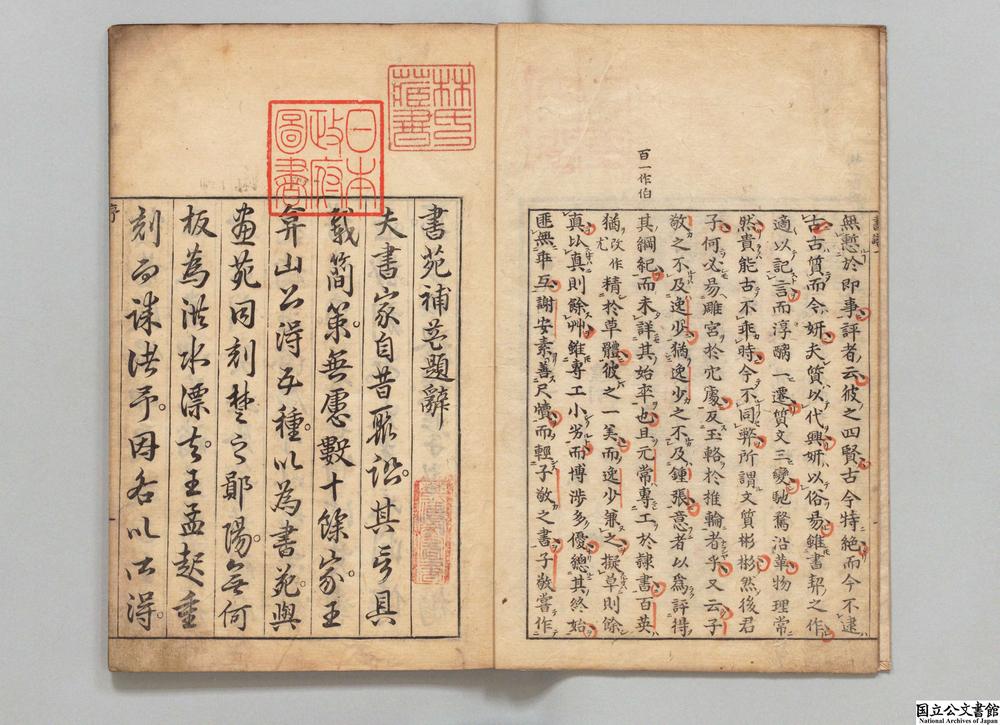 百一作伯
無慙於即事評者云彼之四賢古今特絶而今不逮
古古質而今妍夫質以代興妍以俗易雖書契之作
適以記言而淳醨一遷質文三變馳騖沿革物理常
然貴能古不乖時今不同弊所謂文質彬彬然後君
子何必易雕宮於穴處反玉輅於推輪者乎又云子
敬之不及逸少猶逸少之不及鍾張意者以爲評得
其綱紀而未詳其始卒也且元常專工於隸書百英
猶改作尤精於草體彼之二美而逸少兼之擬草則餘
真以真則餘艸雖專工小劣而博渉多優總其終始
匪無乖互謝安素善尺牘而輕子敬之書子敬嘗作
林氏藏書
日本政府圖書
書苑補益題辭
夫書家自昔聚訟其言具
載簡策。無慮數十餘家。王
弇山公得五種。以為書苑。與
畫苑同刻楚之鄖陽。無何
板為洪水漂去。王孟起重
刻而謀諸予。因各以所得。
序
国立公文書館
National Archives of Japan